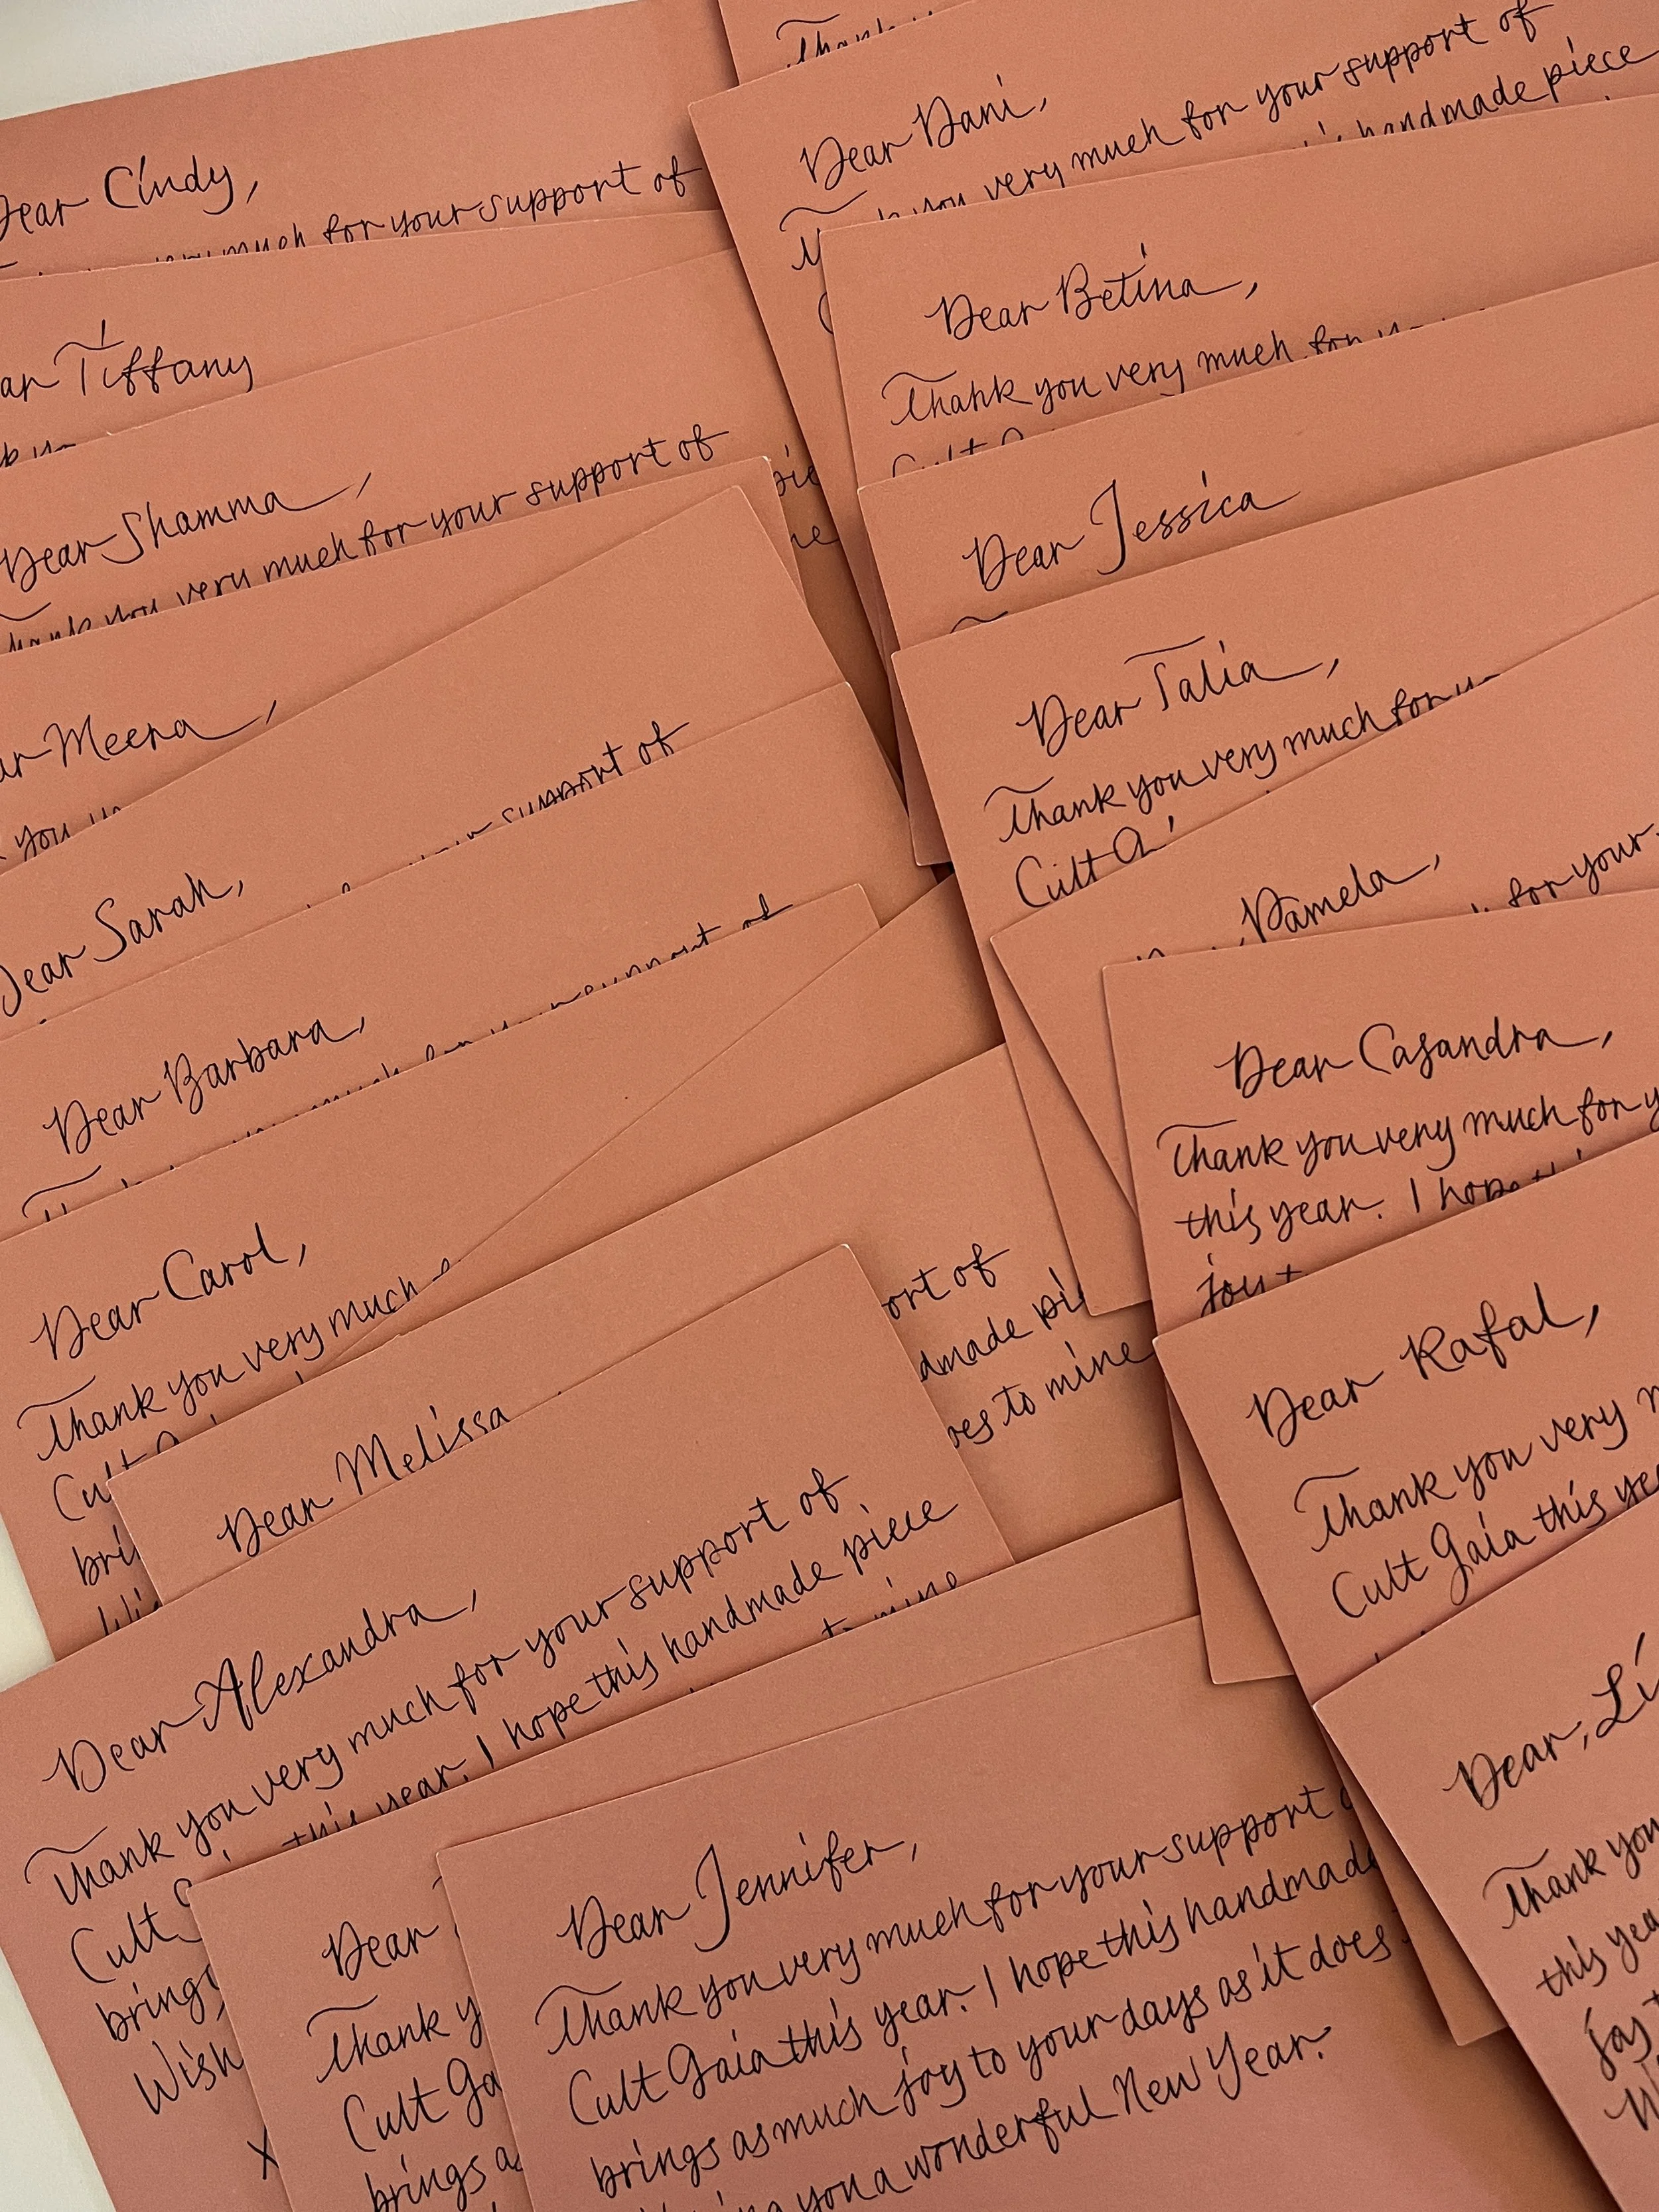 Dear Cindy,
much for your support of
Tiffany
Dear Shamma,
Thank you very much for your support of
Meera,
you
support of
Dear Sarah,
Dear Barbara,
support of
Dear Carol,
Thank you very much
Cult
Dear Melissa
Dear Alexandra,
Thank you very much for your support of
this year. I hope this handmade piece
to mine
Cult
brings
Wish
X
Dear
Thank
Cult
brings
Dear Jennifer,
Thank you very much for your support
Cult Gaia this year. I hope this handmade
brings as much joy to your days as it does
you a wonderful New Year.
Thank
Dear Dani,
Thank you very much for your support of
handmade piece
Dear Betina,
Thank you very much for
Cult
Dear Jessica
Dear Talia,
Thank you very much for
Cult
Pamela,
for your
Dear Casandra,
Thank you very much for
this year. I hope
joy
of
to mine
Dear Rafal,
Thank you very
Cult Gaia this
Dear,
Thank you
this